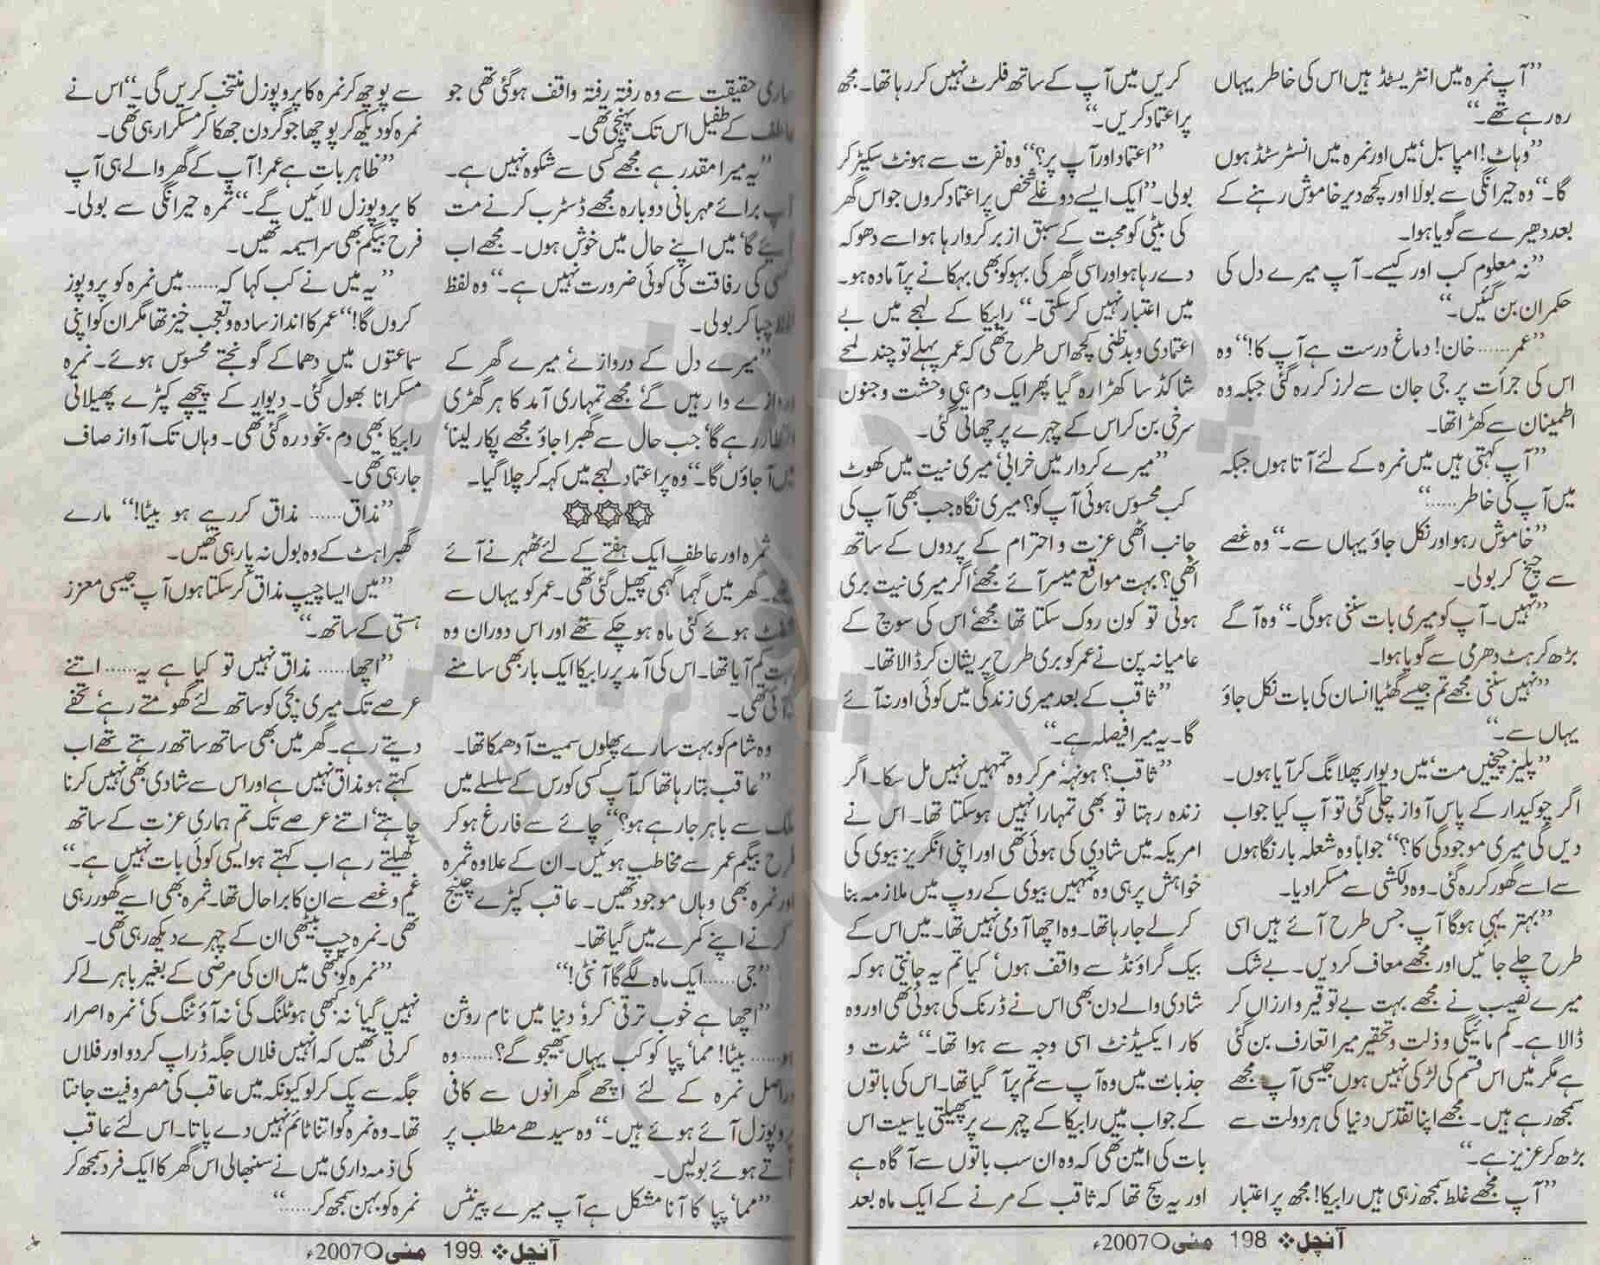 ”آپ نمرہ میں انٹریسٹڈ ہیں اس کی خاطر یہاں
رہ رہے تھے۔“
”وہاٹ! امپاسبل‘ میں اور نمرہ میں انسٹرسٹڈ ہوں
گا۔“ وہ حیرانگی سے بولا اور کچھ دیر خاموش رہنے کے
بعد دھیرے سے گویا ہوا۔
”نہ معلوم کب اور کیسے۔ آپ میرے دل کی
حکمران بن گئیں۔“
”عمر...... خان! دماغ درست ہے آپ کا!“ وہ
اس کی جرأت پر جی جان سے لرز کر رہ گئی جبکہ وہ
اطمینان سے کھڑا تھا۔
”آپ کہتی ہیں میں نمرہ کے لئے آتا ہوں جبکہ
میں آپ کی خاطر......“
”خاموش رہو اور نکل جاؤ یہاں سے۔“ وہ غصے
سے چیخ کر بولی۔
”نہیں۔ آپ کو میری بات سننی ہوگی۔“ وہ آگے
بڑھ کر ہٹ دھرمی سے گویا ہوا۔
”نہیں سننی مجھے تم جیسے گھٹیا انسان کی بات نکل جاؤ
یہاں سے۔“
”پلیز چیخیں مت‘ میں دیوار پھلانگ کر آیا ہوں۔
اگر چوکیدار کے پاس آواز چلی گئی تو آپ کیا جواب
دیں گی میری موجودگی کا؟“ جواباً وہ شعلہ بار نگاہوں
سے اسے گھور کر رہ گئی۔ وہ دلکشی سے مسکرا دیا۔
”بہتر یہی ہوگا آپ جس طرح آئے ہیں اسی
طرح چلے جائیں اور مجھے معاف کر دیں۔ بے شک
میرے نصیب نے مجھے بہت بے توقیر و ارزاں کر
ڈالا ہے۔ کم مائیگی و ذلت و تحقیر میرا تعارف بن گئی
ہے مگر میں اس قسم کی لڑکی نہیں ہوں جیسی آپ مجھے
سمجھ رہے ہیں۔ مجھے اپنا تقدس دنیا کی ہر دولت سے
بڑھ کر عزیز ہے۔“
”آپ مجھے غلط سمجھ رہی ہیں رابیکا! مجھ پر اعتبار
کریں میں آپ کے ساتھ فلرٹ نہیں کر رہا تھا۔ مجھ
پر اعتماد کریں۔“
”اعتماد اور آپ پر؟“ وہ نفرت سے ہونٹ سکیڑ کر
بولی۔ ”ایک ایسے دوغلے شخص پر اعتماد کروں جو اس گھر
کی بیٹی کو محبت کے سبق ازبر کروا رہا ہو اسے دھوکہ
دے رہا ہو اور اسی گھر کی بہو کو بھی بہکانے پر آمادہ ہو۔
میں اعتبار نہیں کر سکتی۔“ رابیکا کے لہجے میں بے
اعتمادی و بدظنی کچھ اس طرح تھی کہ عمر پہلے تو چند لمحے
شاکڈ سا کھڑا رہ گیا پھر ایک دم ہی وحشت و جنون
سرخی بن کر اس کے چہرے پر چھاتی گئی۔
”میرے کردار میں خرابی‘ میری نیت میں کھوٹ
کب محسوس ہوئی آپ کو؟ میری نگاہ جب بھی آپ کی
جانب اٹھی عزت و احترام کے پردوں کے ساتھ
اٹھی؟ بہت مواقع میسر آئے مجھے‘ اگر میری نیت بری
ہوتی تو کون روک سکتا تھا مجھے‘ اس کی سوچ کے
عامیانہ پن نے عمر کو بری طرح پریشان کر ڈالا تھا۔
”ثاقب کے بعد میری زندگی میں کوئی اور نہ آئے
گا۔ یہ میرا فیصلہ ہے۔“
”ثاقب؟ ہونہہ‘ مر کر وہ تمہیں نہیں مل سکا۔ اگر
زندہ رہتا تو بھی تمہارا نہیں ہو سکتا تھا۔ اس نے
امریکہ میں شادی کی ہوئی تھی اور اپنی انگریز بیوی کی
خواہش پر ہی وہ تمہیں بیوی کے روپ میں ملازمہ بنا
کر لے جا رہا تھا۔ وہ اچھا آدمی نہیں تھا۔ میں اس کے
بیک گراؤنڈ سے واقف ہوں‘ کیا تم یہ جانتی ہو کہ
شادی والے دن بھی اس نے ڈرنک کی ہوئی تھی اور وہ
کار ایکسیڈنٹ اسی وجہ سے ہوا تھا۔“ شدت و
جذبات میں وہ آپ سے تم پر آ گیا تھا۔ اس کی باتوں
کے جواب میں رابیکا کے چہرے پر پھیلتی یاسیت اس
بات کی امین تھی کہ وہ ان سب باتوں سے آگاہ ہے
اور یہ سچ تھا کہ ثاقب کے مرنے کے ایک ماہ بعد
آنچل ❖ 198 مئی ○2007ء
ساری حقیقت سے وہ رفتہ رفتہ واقف ہو گئی تھی جو
عاطف کے طفیل اس تک پہنچی تھی۔
”یہ میرا مقدر ہے مجھے کسی سے شکوہ نہیں ہے۔
آپ برائے مہربانی دوبارہ مجھے ڈسٹرب کرنے مت
آیئے گا‘ میں اپنے حال میں خوش ہوں۔ مجھے اب
کسی کی رفاقت کی کوئی ضرورت نہیں ہے۔“ وہ لفظ
چبا کر بولی۔
”میرے دل کے دروازے‘ میرے گھر کے
دروازے وا رہیں گے‘ مجھے تمہاری آمد کا ہر گھڑی
انتظار رہے گا‘ جب حال سے گھبرا جاؤ مجھے پکار لینا‘
میں آ جاؤں گا۔“ وہ پر اعتماد لہجے میں کہہ کر چلا گیا۔
ثمرہ اور عاطف ایک ہفتے کے لئے ٹھہرنے آئے
تھے۔ گھر میں گہما گہمی پھیل گئی تھی۔ عمر کو یہاں سے
شفٹ ہوئے کئی ماہ ہو چکے تھے اور اس دوران وہ
بہت کم آیا تھا۔ اس کی آمد پر رابیکا ایک بار بھی سامنے
نہ آئی تھی۔
وہ شام کو بہت سارے پھلوں سمیت آ دھمکا تھا۔
”عاقب بتا رہا تھا کہ آپ کسی کورس کے سلسلے میں
ملک سے باہر جا رہے ہو؟“ چائے سے فارغ ہو کر
فرح بیگم عمر سے مخاطب ہوئیں۔ ان کے علاوہ ثمرہ
اور نمرہ بھی وہاں موجود تھیں۔ عاقب کپڑے چینج
کرنے اپنے کمرے میں گیا تھا۔
”جی...... ایک ماہ لگے گا آنٹی!“
”اچھا ہے خوب ترقی کرو‘ دنیا میں نام روشن
ہو...... بیٹا! مما‘ پپا کو کب یہاں بھیجو گے؟...... وہ
دراصل نمرہ کے لئے اچھے گھرانوں سے کافی
پروپوزل آئے ہوئے ہیں۔“ وہ سیدھے مطلب پر
آتے ہوئے بولیں۔
”مما‘ پپا کا آنا مشکل ہے آپ میرے پیرنٹس
سے پوچھ کر نمرہ کا پروپوزل منتخب کریں گی۔“ اس نے
نمرہ کو دیکھ کر پوچھا جو گردن جھکا کر مسکرا رہی تھی۔
”ظاہر بات ہے عمر! آپ کے گھر والے ہی آپ
کا پروپوزل لائیں گے۔“ ثمرہ حیرانگی سے بولی۔
فرح بیگم بھی سراسیمہ تھیں۔
”یہ میں نے کب کہا کہ...... میں نمرہ کو پروپوز
کروں گا!“ عمر کا انداز سادہ و تعجب خیز تھا مگر ان کو اپنی
سماعتوں میں دھماکے گونجتے محسوس ہوئے۔ نمرہ
مسکرانا بھول گئی۔ دیوار کے پیچھے کپڑے پھیلاتی
رابیکا بھی دم بخود رہ گئی تھی۔ وہاں تک آواز صاف
جا رہی تھی۔
”مذاق...... مذاق کر رہے ہو بیٹا!“ مارے
گھبراہٹ کے وہ بول نہ پا رہی تھیں۔
”میں ایسا چیپ مذاق کر سکتا ہوں آپ جیسی معزز
ہستی کے ساتھ۔“
”اچھا...... مذاق نہیں تو کیا ہے یہ...... اتنے
عرصے تک میری بچی کو ساتھ لئے گھومتے رہے‘ تحفے
دیتے رہے۔ گھر میں بھی ساتھ ساتھ رہتے تھے اب
کہتے ہو مذاق نہیں ہے اور اس سے شادی بھی نہیں کرنا
چاہتے‘ اتنے عرصے تک تم ہماری عزت کے ساتھ
کھیلتے رہے اب کہتے ہو ایسی کوئی بات نہیں ہے۔“
غم و غصے سے ان کا برا حال تھا۔ ثمرہ بھی اسے گھور رہی
تھی۔ نمرہ چپ بیٹھی ان کے چہرے دیکھ رہی تھی۔
”نمرہ کو کبھی میں ان کی مرضی کے بغیر باہر لے کر
نہیں گیا‘ نہ کبھی ہوٹلنگ کی‘ نہ آؤٹنگ کی‘ نمرہ اصرار
کرتی تھیں کہ انہیں فلاں جگہ ڈراپ کر دو اور فلاں
جگہ سے پک کر لو کیونکہ میں عاقب کی مصروفیت جانتا
تھا۔ وہ نمرہ کو اتنا ٹائم نہیں دے پاتا۔ اس لئے عاقب
کی ذمہ داری میں نے سنبھالی اس گھر کا ایک فرد سمجھ کر
نمرہ کو بہن سمجھ کر......“
آنچل ❖ 199 مئی ○2007ء